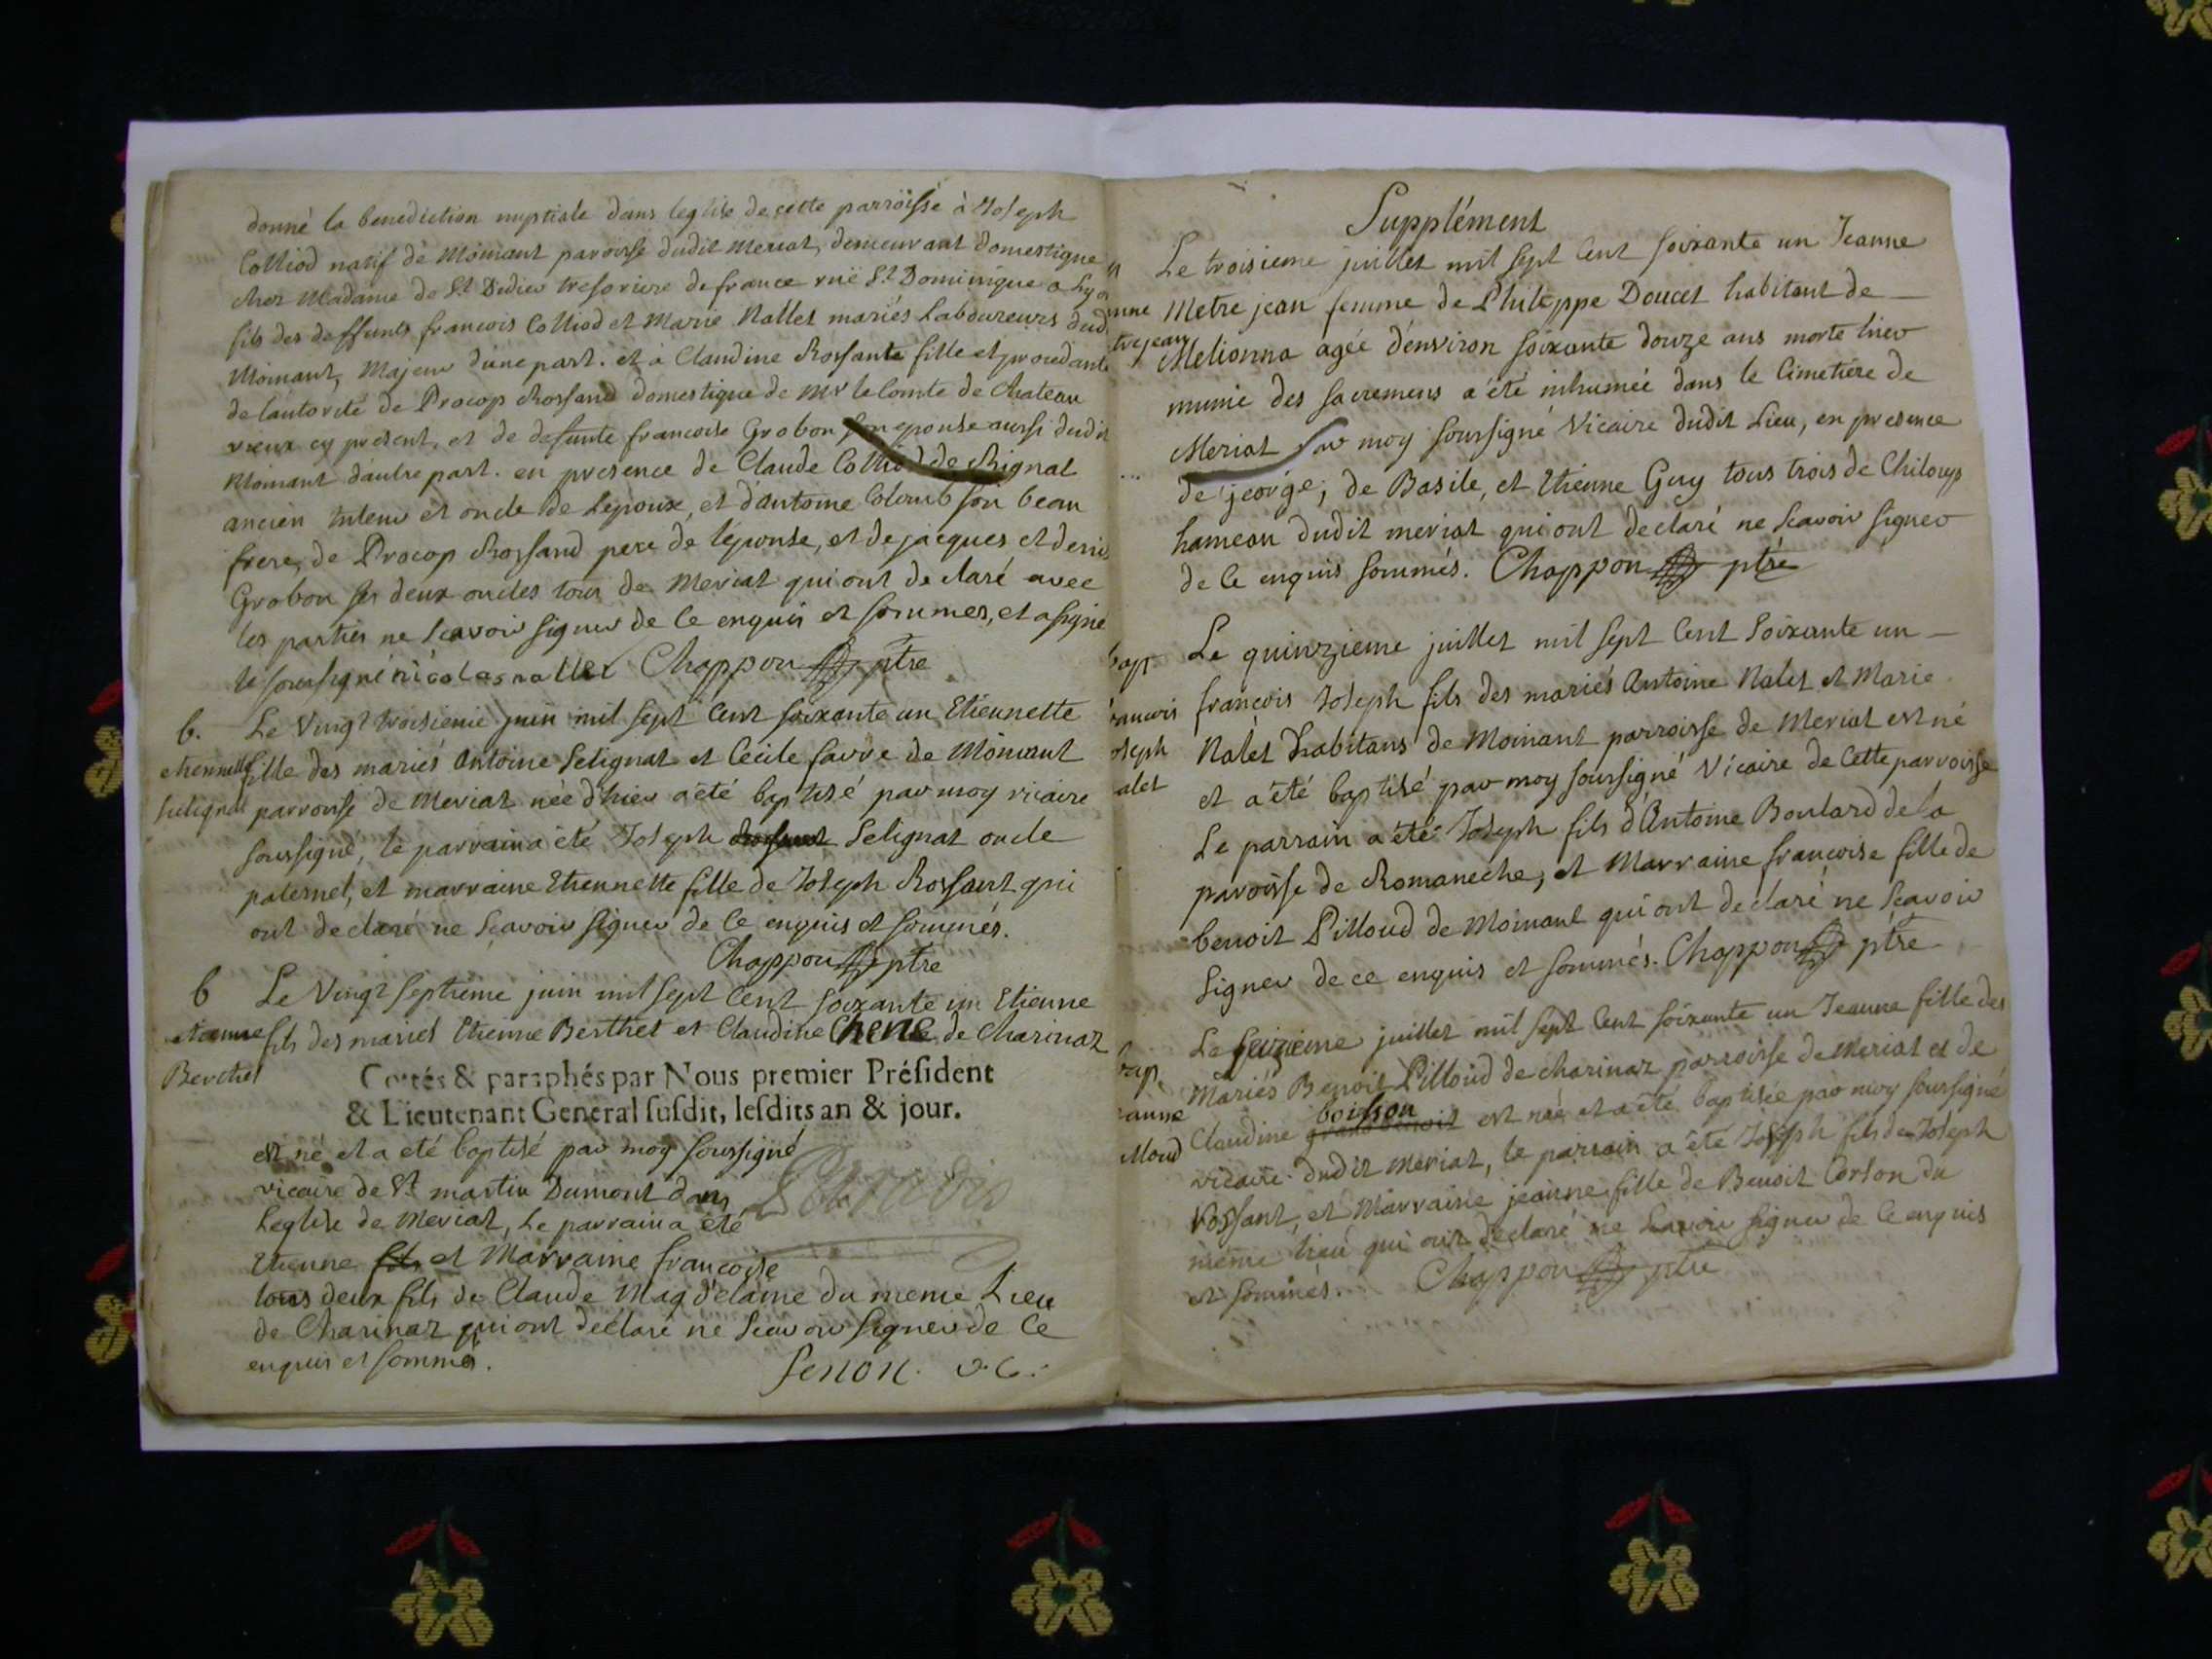 donné la benediction nuptiale dans leglise de cette parroisse à Joseph
Colliod natif de Moinant paroisse dudit meriat, demeurant domestique
chez Madame de St. Didier tresoriere de france rüe St. Dominique a Lyon
fils des deffunts francois Colliod et Marie Nallet mariés Laboureurs dud.
Moinant, Majeur dune part. et à Claudine Rossante fille et procedante
de lautorité de Procop Rossand domestique de Mr le Comte de Chateau
vieux cy present, et de defunte francoise Grobon son epouse aussi dudit
Moinant dautre part. en presence de Claude Colliod de Rignat
ancien tuteur et oncle de Lepoux, et d'antoine Colomb son beau
frere, de Procop Rossand pere de lépouse, et de jacques et denis
Grobon ses deux oncles tous de Meriat qui ont declaré avec
les parties ne scavoir signer de ce enquis et sommes, et a signé
le soussigné nicolas nallet Chappon ptre
b. Le Vingt troisieme juin mil sept cent soixante un Etiennette
etiennette fille des mariés Antoine Selignat et Cecile favre de Moinant
Selignat parroisse de Meriat née d'hier a été baptisé par moy vicaire
soussigné, le parrain a été Joseph Selignat oncle
paternel, et marraine Etiennette fille de Joseph Rossant qui
ont declaré ne scavoir signer de ce enquis et sommés.
Chappon ptre
b Le Vingt septieme juin mil sept cent soixante un Etienne
etienne fils des mariés Etienne Berthet et Claudine Chene de Charinaz
Berthet
Cottés & paraphés par Nous premier Président
& Lieutenant General susdit, lesdits an & jour.
est né et a eté baptisé par moy soussigné
vicaire de St martin Dumont dans
Leglise de Meriat, Le parrain a été
Etienne fils et Marraine francoise
tous deux fils de Claude Magdelaine du meme Lieu
de Charinaz qui ont declaré ne scavoir signer de ce
enquis et sommés.
fenon. v.c.
Supplément
Le troisieme juillet mil sept cent soixante un Jeanne
Metre jean femme de Philippe Doucet habitant de
trejean Melionna agée d'environ soixante douze ans morte hier
munie des sacremens a été inhumée dans le Cimetiere de
Meriat par moy soussigné Vicaire dudit Lieu, en presence
de george, de Basile, et Etienne Guy tous trois de Chiloup
hameau dudit meriat qui ont declaré ne scavoir signer
de ce enquis sommés. Chappon ptre
bap. Le quinzieme juillet mil sept cent soixante un
rancois francois Joseph fils des mariés Antoine Nalet et Marie
oseph Nalet habitans de Moinant parroisse de Meriat est né
alet et a été baptisé par moy soussigné Vicaire de Cette parroisse
Le parrain a été Joseph fils d'Antoine Boulard de la
paroisse de Romaneche, et Marraine francoise fille de
benoit Pilloud de Moinant qui ont declaré ne scavoir
signer de ce enquis et sommés. Chappon ptre
Le seizieme juillet mil sept cent soixante un Jeanne fille des
bap. Mariés Benoit Pilloud de charinaz parroisse de Meriat et de
boisson
eanne Claudine est née et a été baptisée par moy soussigné
illoud vicaire dudit Meriat, le parrain a été Joseph fils de Joseph
Rossant, et Marraine jeanne fille de Benoit Corson du
même Lieu qui ont declaré ne scavoir signer de ce enquis
et sommés. Chappon ptre